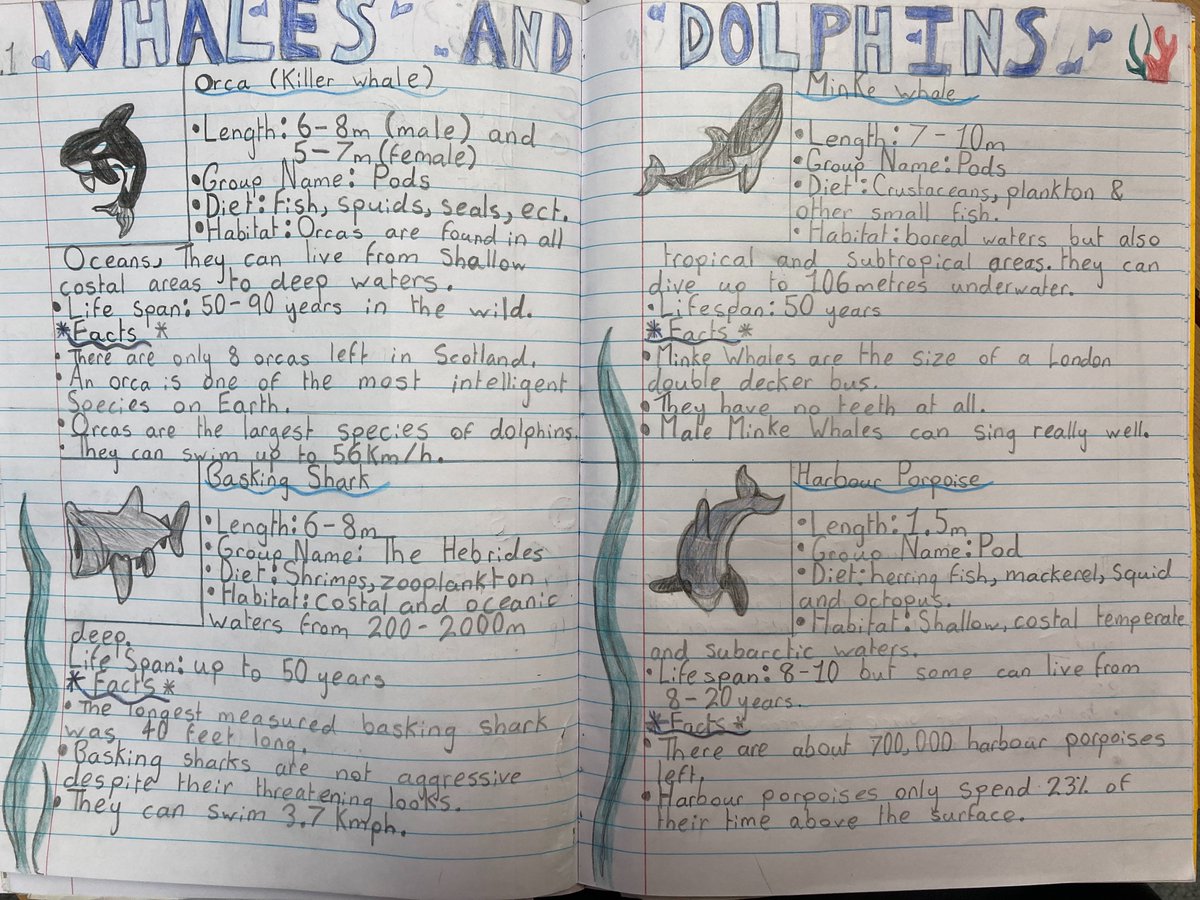 WHALES AND DOLPHINS
.1
Orca (Killer whale)
•Length: 6-8m (male) and
5-7m (female)
•Group Name: Pods
•Diet: Fish, squids, seals, ect.
•Habitat: Orcas are found in all
Oceans, They can live from Shallow
costal areas to deep waters.
•Life span: 50-90 years in the wild.
*Facts*
•There are only 8 orcas left in Scotland.
•An orca is one of the most intelligent
Species on Earth.
•Orcas are the largest species of dolphins.
•They can swim up to 56Km/h.
Basking Shark
•Length: 6-8m
•Group Name: The Hebrides
•Diet: Shrimps, zooplankton
•Habitat: costal and oceanic
waters from 200-2000m
deep.
Life Span: up to 50 years
*Facts*
•The longest measured basking shark
was 40 feet long.
•Basking sharks are not aggressive
despite their threatening looks.
•They can swim 3.7 Kmph.
Minke whale
•Length: 7-10m
•Group Name: Pods
•Diet: Crustaceans, plankton &
other small fish.
•Habitat: boreal waters but also
tropical and subtropical areas. they can
dive up to 106 metres underwater.
•Lifespan: 50 years
*Facts*
•Minke Whales are the size of a London
double decker bus.
•They have no teeth at all.
•Male Minke Whales can sing really well.
Harbour Porpoise
•Length: 1.5m
•Group Name: Pod
•Diet: herring fish, mackerel, Squid
and octopus.
•Habitat: Shallow, costal temperate
and subarctic waters.
•Lifespan: 8-10 but some can live from
8-20 years.
*Facts*
•There are about 700,000 harbour porpoises
left.
•Harbour porpoises only spend 23% of
their time above the surface.